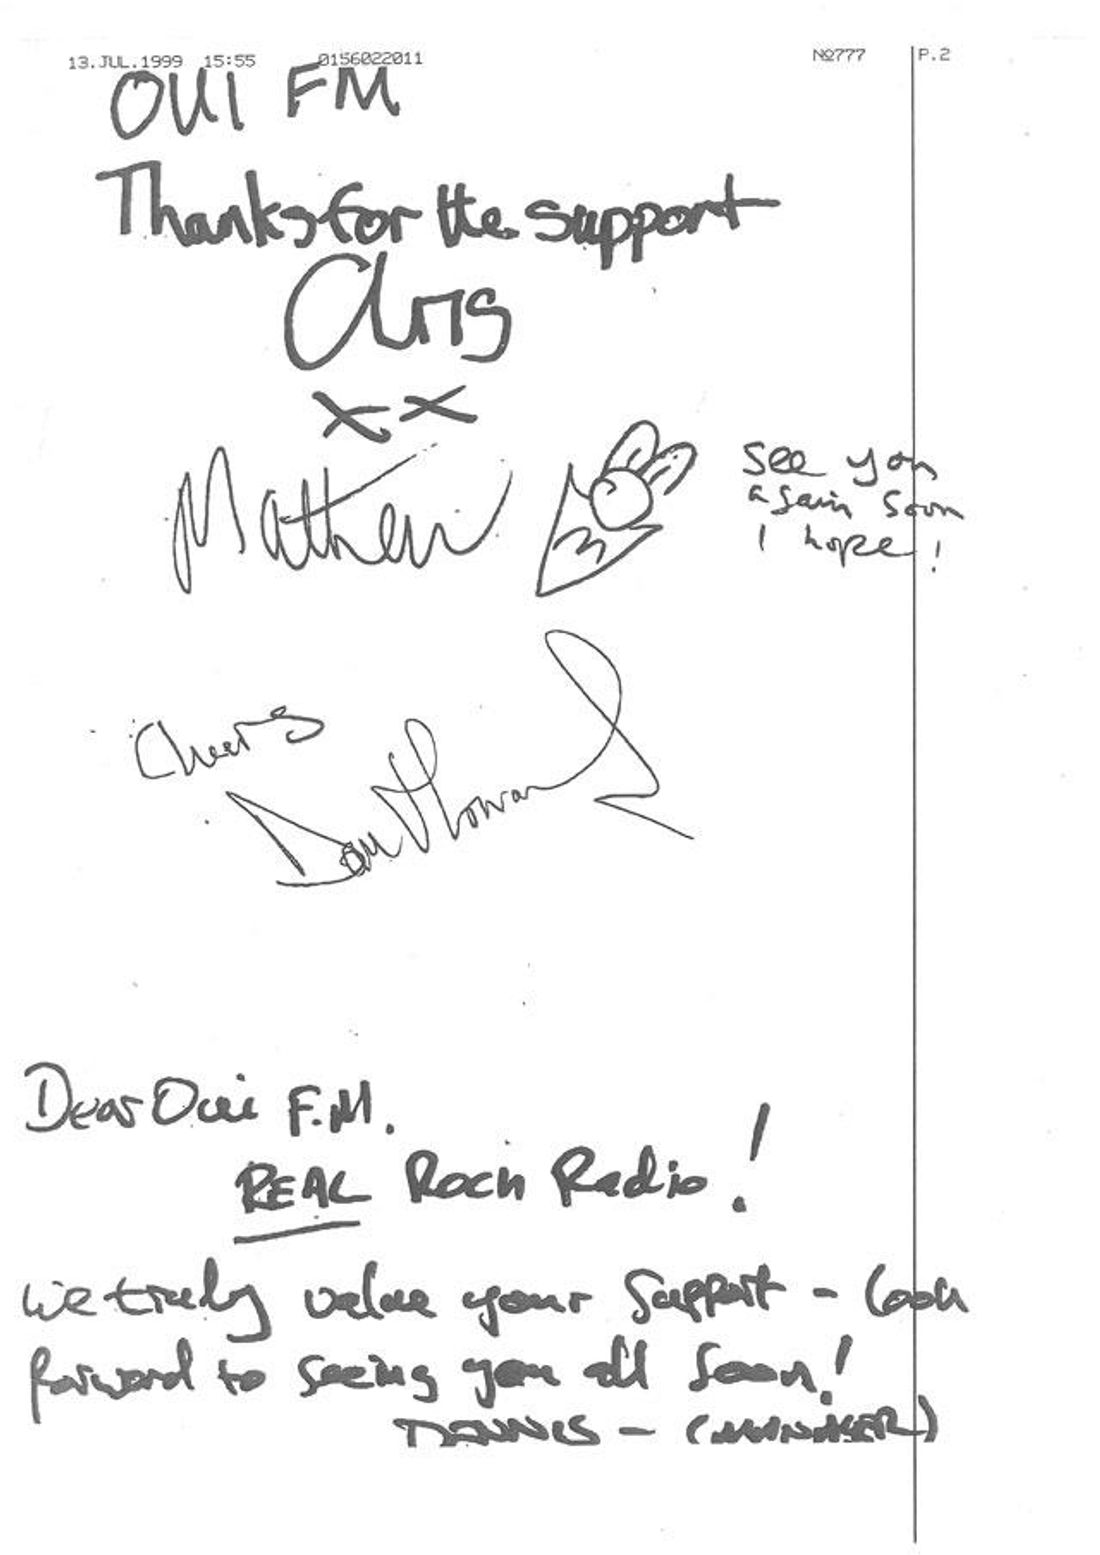 13.JUL.1999 15:55 0156022011 Nº777 P.2
OUI FM
Thanks for the support
Chris
xx
Mathew
See you
again soon
I hope!
Cheers
Dan Howard
Dear Oui F.M.
REAL Rock Radio!
We truly value your support - look
forward to seeing you all soon!
DENNIS - (MANAGER)